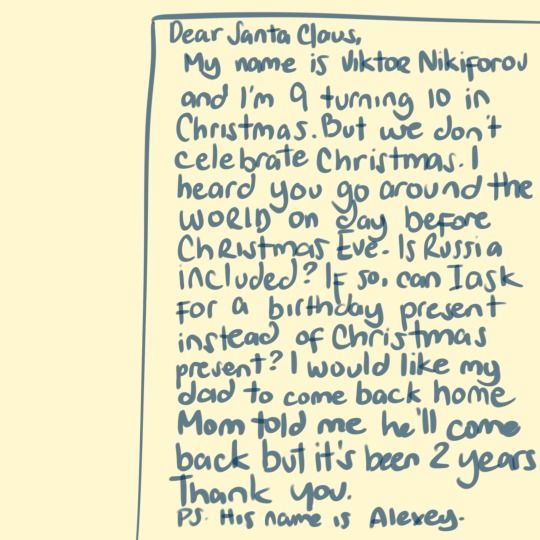 Dear Santa Claus,
My name is Viktor Nikiforov
and I'm 9 turning 10 in
Christmas. But we don't
celebrate Christmas. I
heard you go around the
WORLD on day before
Christmas Eve. Is Russia
included? If so, can I ask
for a birthday present
instead of Christmas
present? I would like my
dad to come back home
Mom told me he'll come
back but it's been 2 years
Thank you.
PS. His name is Alexey.